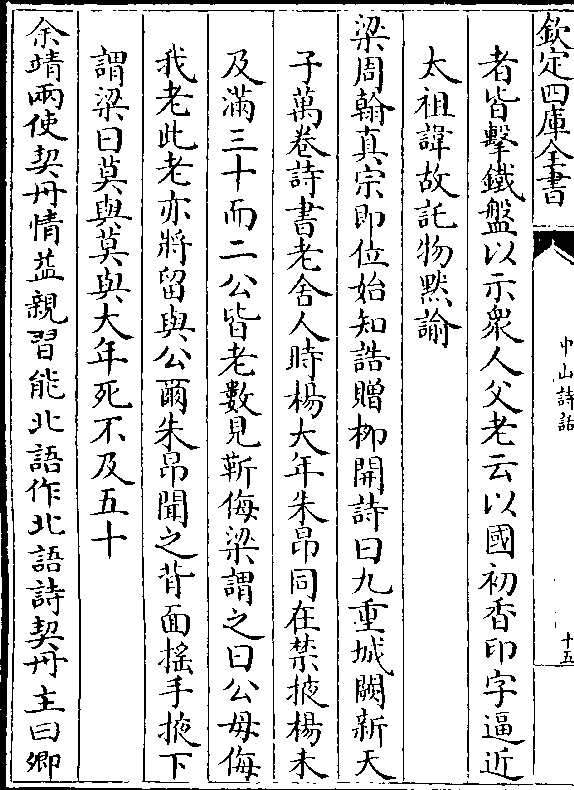 欽定四庫全書
中山詩話
十五
者皆擊鐵盤以示衆人父老云以國初香印字逼近
太祖諱故託物黙諭
梁周翰真宗即位始知誥贈柳開詩曰九重城闕新天
子萬卷詩書老舍人時楊大年朱昂同在禁掖楊未
及滿三十而二公皆老數見靳侮梁謂之曰公毋侮
我老此老亦將留與公爾朱昂聞之背面搖手掖下
謂梁曰莫與莫與大年死不及五十
余靖兩使契丹情益親習能北語作北語詩契丹主曰卿